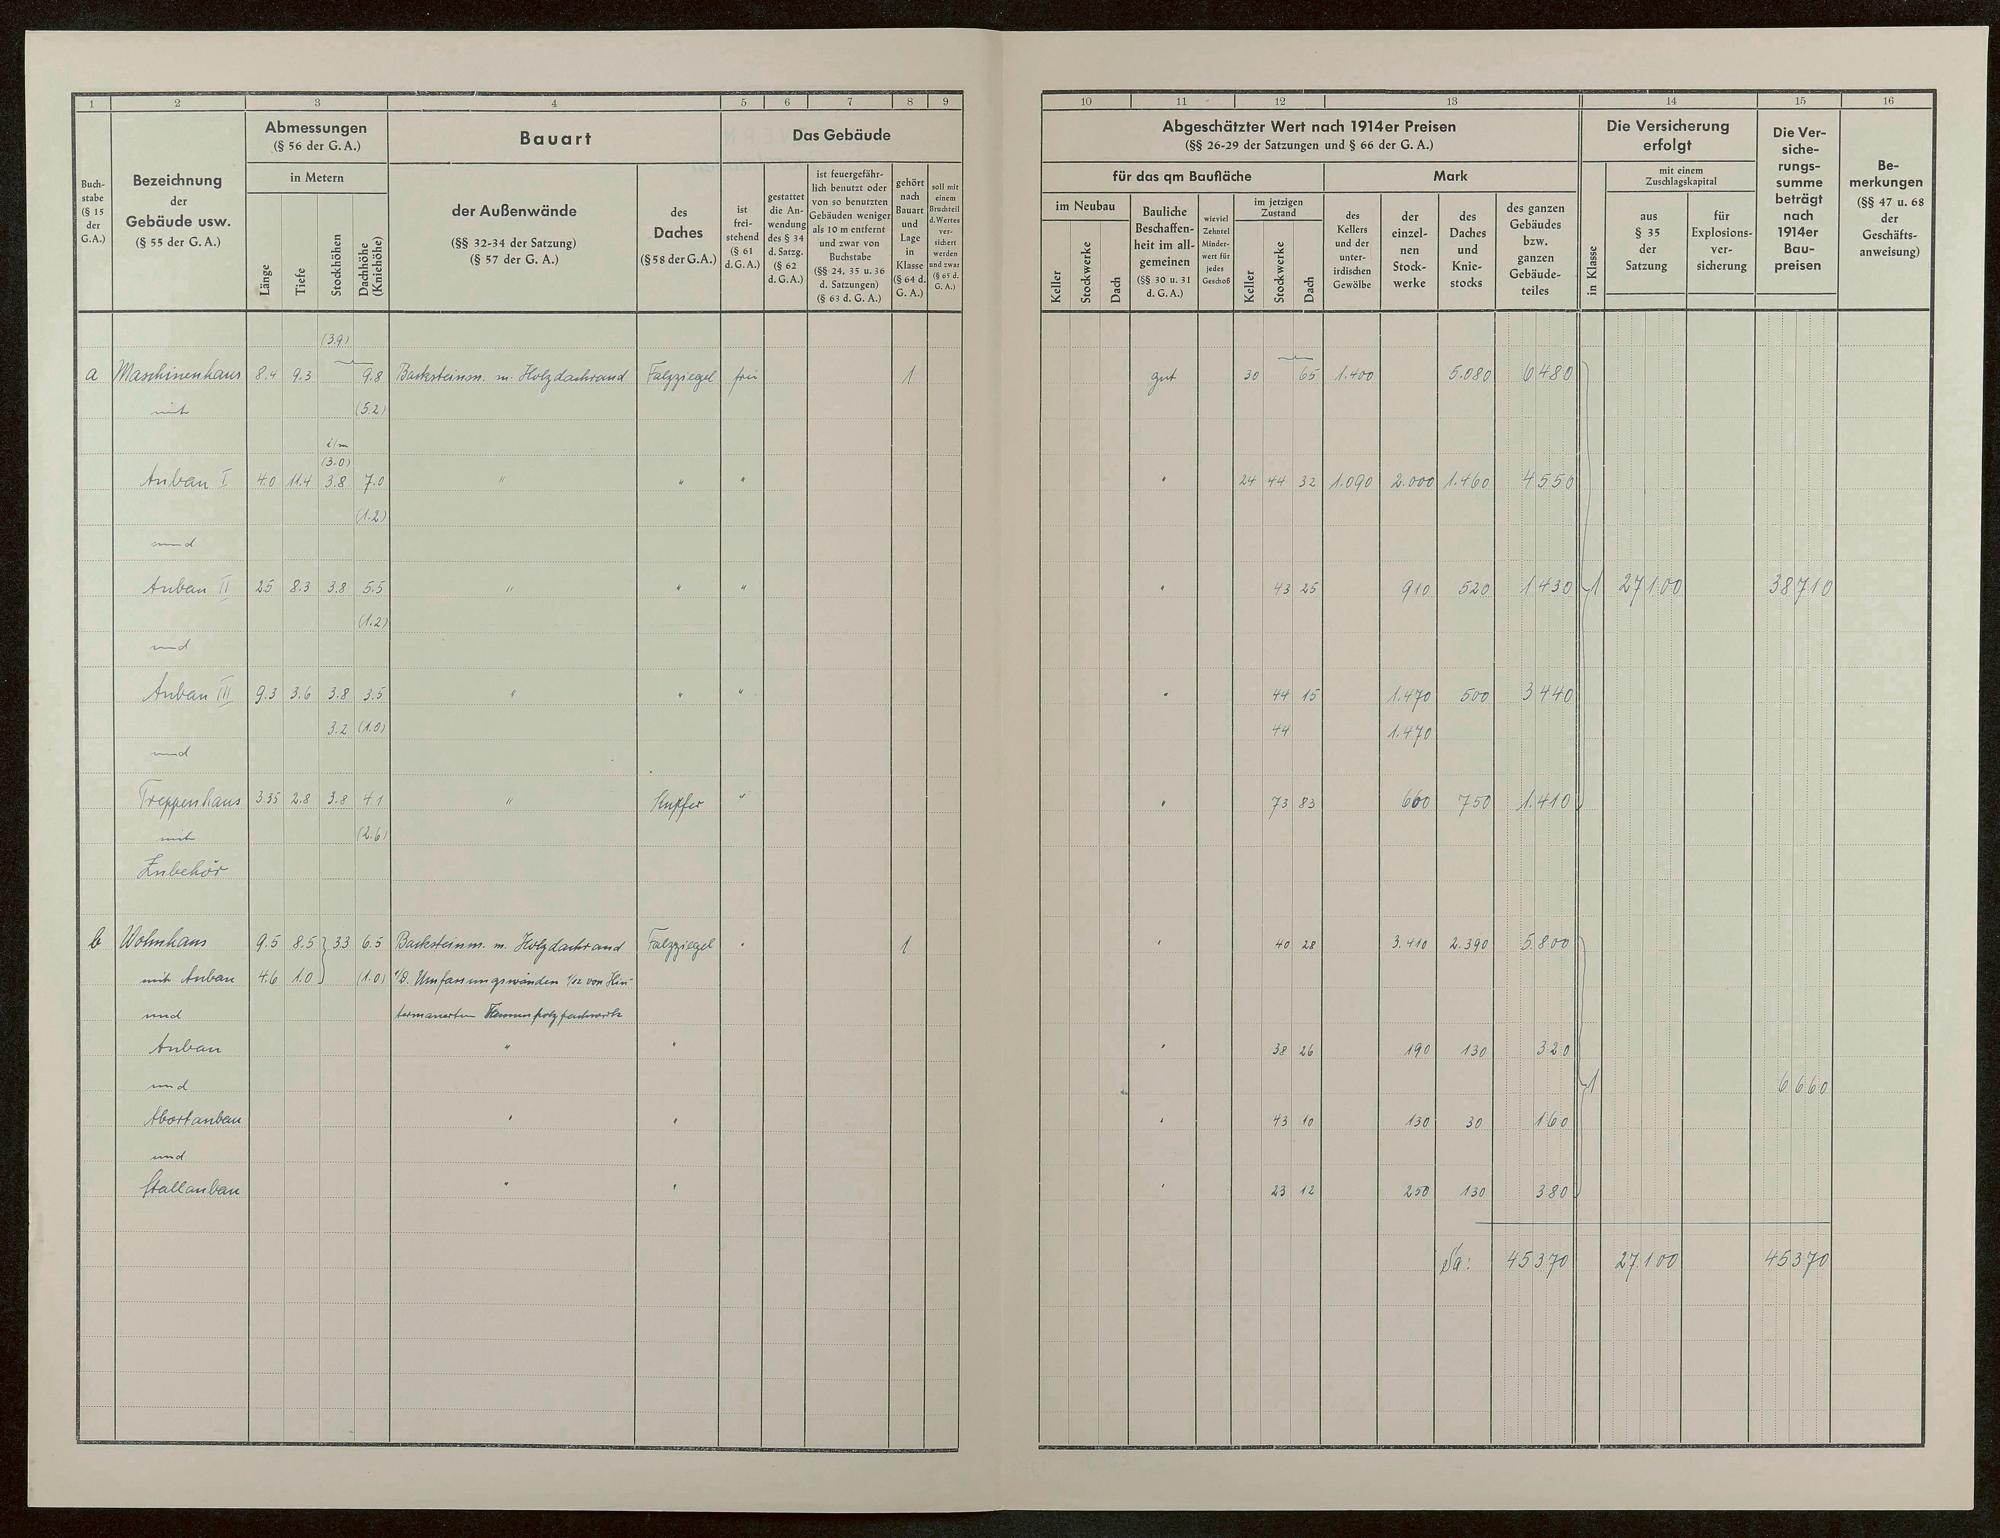 1 2 3 4 5 6 7 8 9 10 11 12 13 14 15 16
Buch-
stabe
(§ 15
der
G.A.)
Bezeichnung
der
Gebäude usw.
(§ 55 der G. A.)
Abmessungen
(§ 56 der G. A.)
in Metern
Länge
Tiefe
Stockhöhen
Dachhöhe
(Kniehöhe)
Bauart
der Außenwände
(§§ 32-34 der Satzung)
(§ 57 der G. A.)
des
Daches
(§58 der G.A.)
Das Gebäude
ist
frei-
stehend
(§ 61
d. G. A.)
gestattet
die An-
wendung
des § 34
d. Satzg.
(§ 62
d. G. A.)
ist feuergefähr-
lich benutzt oder
von so benutzten
Gebäuden weniger
als 10 m entfernt
und zwar von
Buchstabe
(§§ 24, 35 u. 36
d. Satzungen)
(§ 63 d. G. A.)
gehört
nach
Bauart
und
Lage
in
Klasse
(§ 64 d.
G. A.)
soll mit
einem
Bruchteil
d. Wertes
ver-
sichert
werden
und zwar
(§ 65 d.
G. A.)
Abgeschätzter Wert nach 1914er Preisen
(§§ 26-29 der Satzungen und § 66 der G. A.)
für das qm Baufläche
im Neubau
Keller
Stockwerke
Dach
Bauliche
Beschaffen-
heit im all-
gemeinen
(§§ 30 u. 31
d. G. A.)
wieviel
Zehntel
Minder-
wert für
jedes
Geschoß
im jetzigen
Zustand
Keller
Stockwerke
Dach
Mark
des
Kellers
und der
unter-
irdischen
Gewölbe
der
einzel-
nen
Stock-
werke
des
Daches
und
Knie-
stocks
des ganzen
Gebäudes
bzw.
ganzen
Gebäude-
teiles
Die Versicherung
erfolgt
in Klasse
mit einem
Zuschlagskapital
aus
§ 35
der
Satzung
für
Explosions-
ver-
sicherung
Die Ver-
siche-
rungs-
summe
beträgt
nach
1914er
Bau-
preisen
Be-
merkungen
(§§ 47 u. 68
der
Geschäfts-
anweisung)
(3.9)
a Maschinenhaus 8.4 9.3 9.8 Backsteinm. m. Holzdachrand Falzziegel frei 1 gut 30 65 1.400 5.080 6480
mit (5.2)
i/m
(3.0)
Anbau I 4.0 11.4 3.8 7.0 " " " " 24 44 32 1.090 2.000 1.460 4550
(1.2)
und
Anbau II 25 8.3 3.8 5.5 " " " " 43 25 910 520 1430 1 27100 38710
(1.2)
und
Anbau III 9.3 3.6 3.8 3.5 " " " " 44 15 1.470 500 3440
3.2 (1.0) 44 1.470
und
Treppenhaus 3.35 2.8 3.8 4.1 " Kupfer " " 73 83 660 750 1.410
mit (2.6)
Zubehör
b Wohnhaus 9.5 8.5 3.3 6.5 Backsteinm. m. Holzdachrand Falzziegel " 1 " 40 28 3.410 2.390 5.800
mit Anbau 4.6 1.0 (1.0) D. Umfassungswänden 1/12 von Hin-
und termauertem
Anbau " " " 38 26 190 130 320
und 1 6660
Abortanbau " " " 43 10 130 30 160
und
Stallanbau " " " 23 12 250 130 380
Sa: 45370 27.100 45370